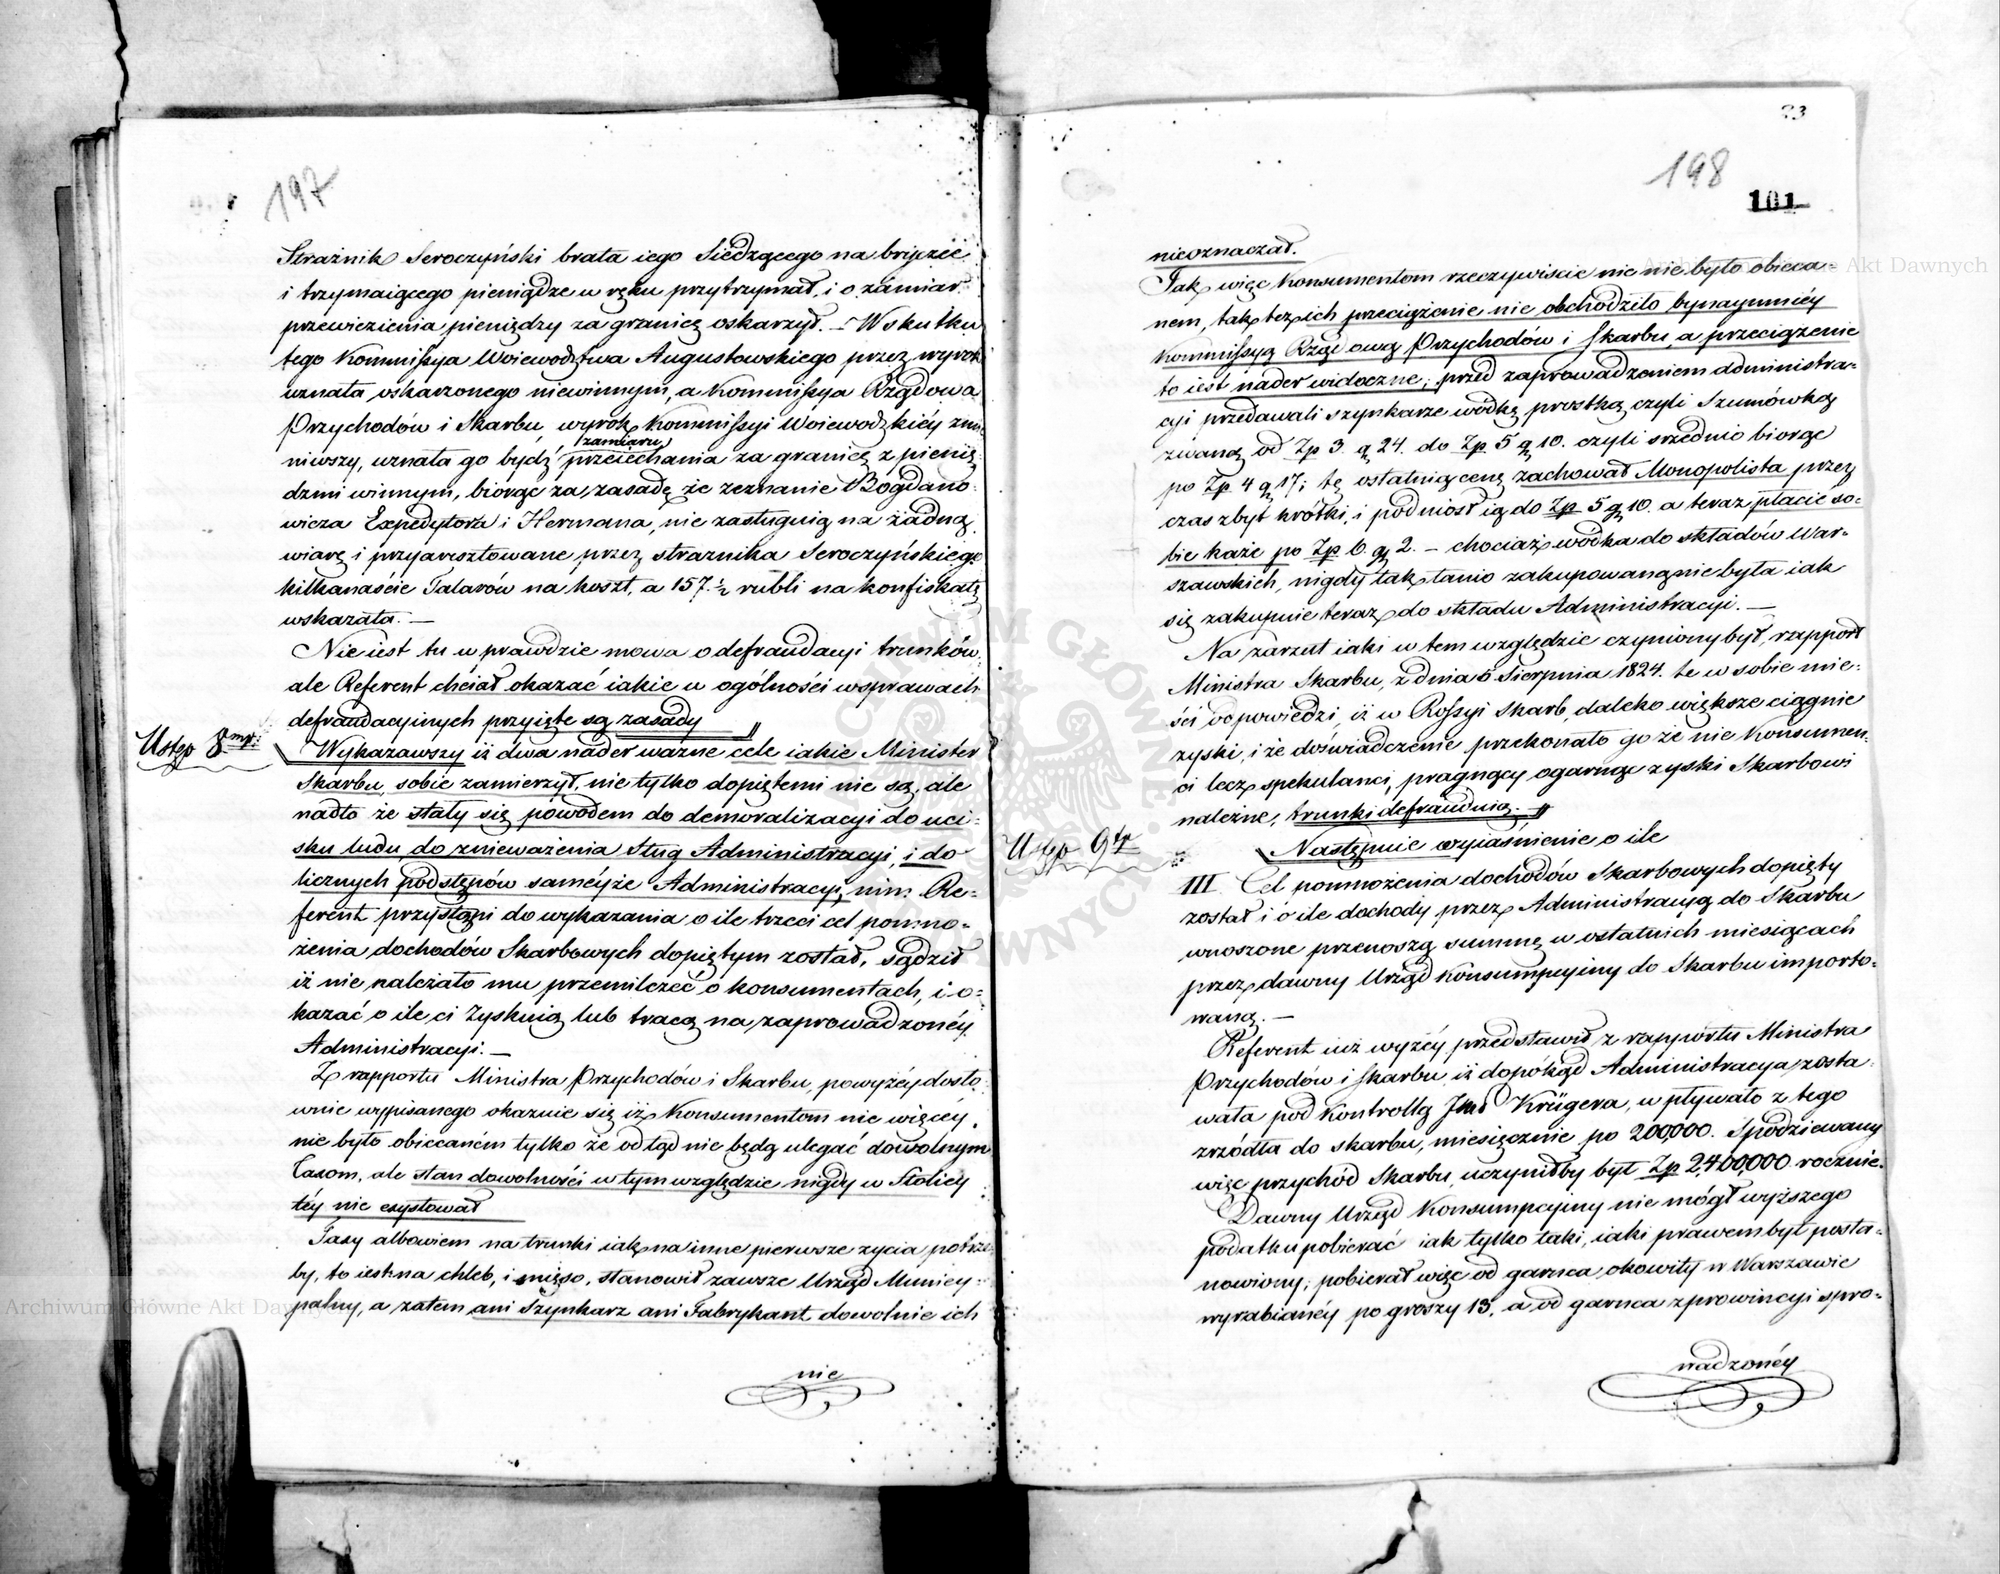 197
Strażnik Seroczyński brata iego siedzącego na bryczce
i trzymaiącego pieniądze w ręku przytrzymał, i o zamiar
przewiezienia pieniędzy za granicę oskarzył. — Wskutku
tego Kommissya Woiewodztwa Augustowskiego przez wyrok
uznała oskarzonego niewinnym, a Kommissya Rządowa
Przychodów i Skarbu, wyrok Kommissyi Woiewodzkiéy zni-
zamiaru
niwszy, uznała go bydź przeiechania za granicę z pienię-
dzmi winnym, biorąc za zasadę że zeznanie Bogdano-
wicza Expedytora i Hermana, nie zasługuią na żadną
wiarę i przyaresztowane przez strażnika Seroczyńskiego
kilkanaście Talarów na koszt, a 157 ½ rubli na konfiskatę
wskazała. —
Nie iest tu wprawdzie mowa o defraudacyi trunków,
ale Referent chciał okazać iakie w ogólności w sprawach
defraudacyinych przyięte są zasady //
Ustęp 8my:
Wykazawszy iż dwa nader ważne cele iakie Minister
Skarbu sobie zamierzył, nie tylko dopiętemi nie są, ale
nadto że stały się powodem do demoralizacyi do uci-
sku ludu, do znieważenia Sług Administracyi, i do
licznych podstępów saméyże Administracyi, nim Re-
ferent przystąpi do wykazania o ile trzeci cel pomno-
żenia dochodów Skarbowych dopiętym został, sądził
iż nie należało mu przemilczeć o konsumentach, i o-
kazać o ile ci zyskuią lub tracą na zaprowadzonéy
Administracyi. —
Z rapportu Ministra Przychodów i Skarbu, powyżéy dosło-
wnie wypisanego okazuie się iż Konsumentom nic więcéy
nie było obiecaném tylko że odtąd nie będą ulegać dowolnym
Taxom, ale stan dowolności w tym względzie nigdy w Stolicy
téy nie exystował
Taxy albowiem na trunki iak na inne pierwsze życia potrze-
by, to iest na chleb, i mięso, stanowił zawsze Urząd Municy-
palny, a zatem ani Szynkarz ani Fabrykant dowolnie ich
nie
198
101
nieoznaczał.
Jak więc Konsumentom rzeczywiscie nic nie było obieca-
nem, tak też ich przeciążenie nic obchodziło bynaymniéy
Kommissyą Rządową Przychodów i Skarbu, a przeciążenie
to iest nader widoczne; przed zaprowadzeniem administra-
cyi przedawali szynkarze wódkę prostką czyli Szumówką
zwaną od Zp 3 g 24. do Zp 5 g 10. czyli srzednio biorąc
po Zp 4 g 17; tę ostatnią cenę zachował Monopolista przez
czas zbyt krótki, i podniosł ią do Zp 5 g 10. a teraz płacić so-
bie każe po Zp 6 g 2. — chociaż wódka do składów War-
szawskich, nigdy tak tanio zakupowaną nie była iak
się zakupuie teraz do składu Administracyi. —
Na zarzut iaki w tem względzie czyniony był, rapport
Ministra Skarbu, z dnia 5 Sierpnia 1824. te w sobie mie-
ści odpowiedzi, iż w Rossyi Skarb, daleko większe ciągnie
zyski, i że doświadczenie przekonało go że nie Konsumen-
ci lecz spekulanci, pragnący ogarnąć zyski Skarbowi
należne, trunki defrauduią. //
Ustęp 9ty
Następnie wyiaśnienie o ile
III. Cel pomnożenia dochodów Skarbowych dopięty
został i o ile dochody przez Administracyą do Skarbu
wnoszone przenoszą summę w ostatnich miesiącach
przez dawny Urząd Konsumpcyiny do Skarbu importo-
waną. —
Referent iuż wyżéy przedstawił z rapportu Ministra
Przychodów i Skarbu iż dopókąd Administracya zosta-
wała pod kontrollą Krügera, wpływało z tego
zrzódła do skarbu, miesięcznie po 200,000. Spodziewany
więc przychód Skarbu, uczyniłby był Zp 2,400,000 rocznie.
Dawny Urząd Konsumpcyiny nie mógł wyższego
podatku pobierać iak tylko taki, iaki prawem był posta-
nowiony; pobierał więc od garnca okowity w Warszawie
wyrabianéy po groszy 13, a od garnca z prowincyi spro-
wadzonéy